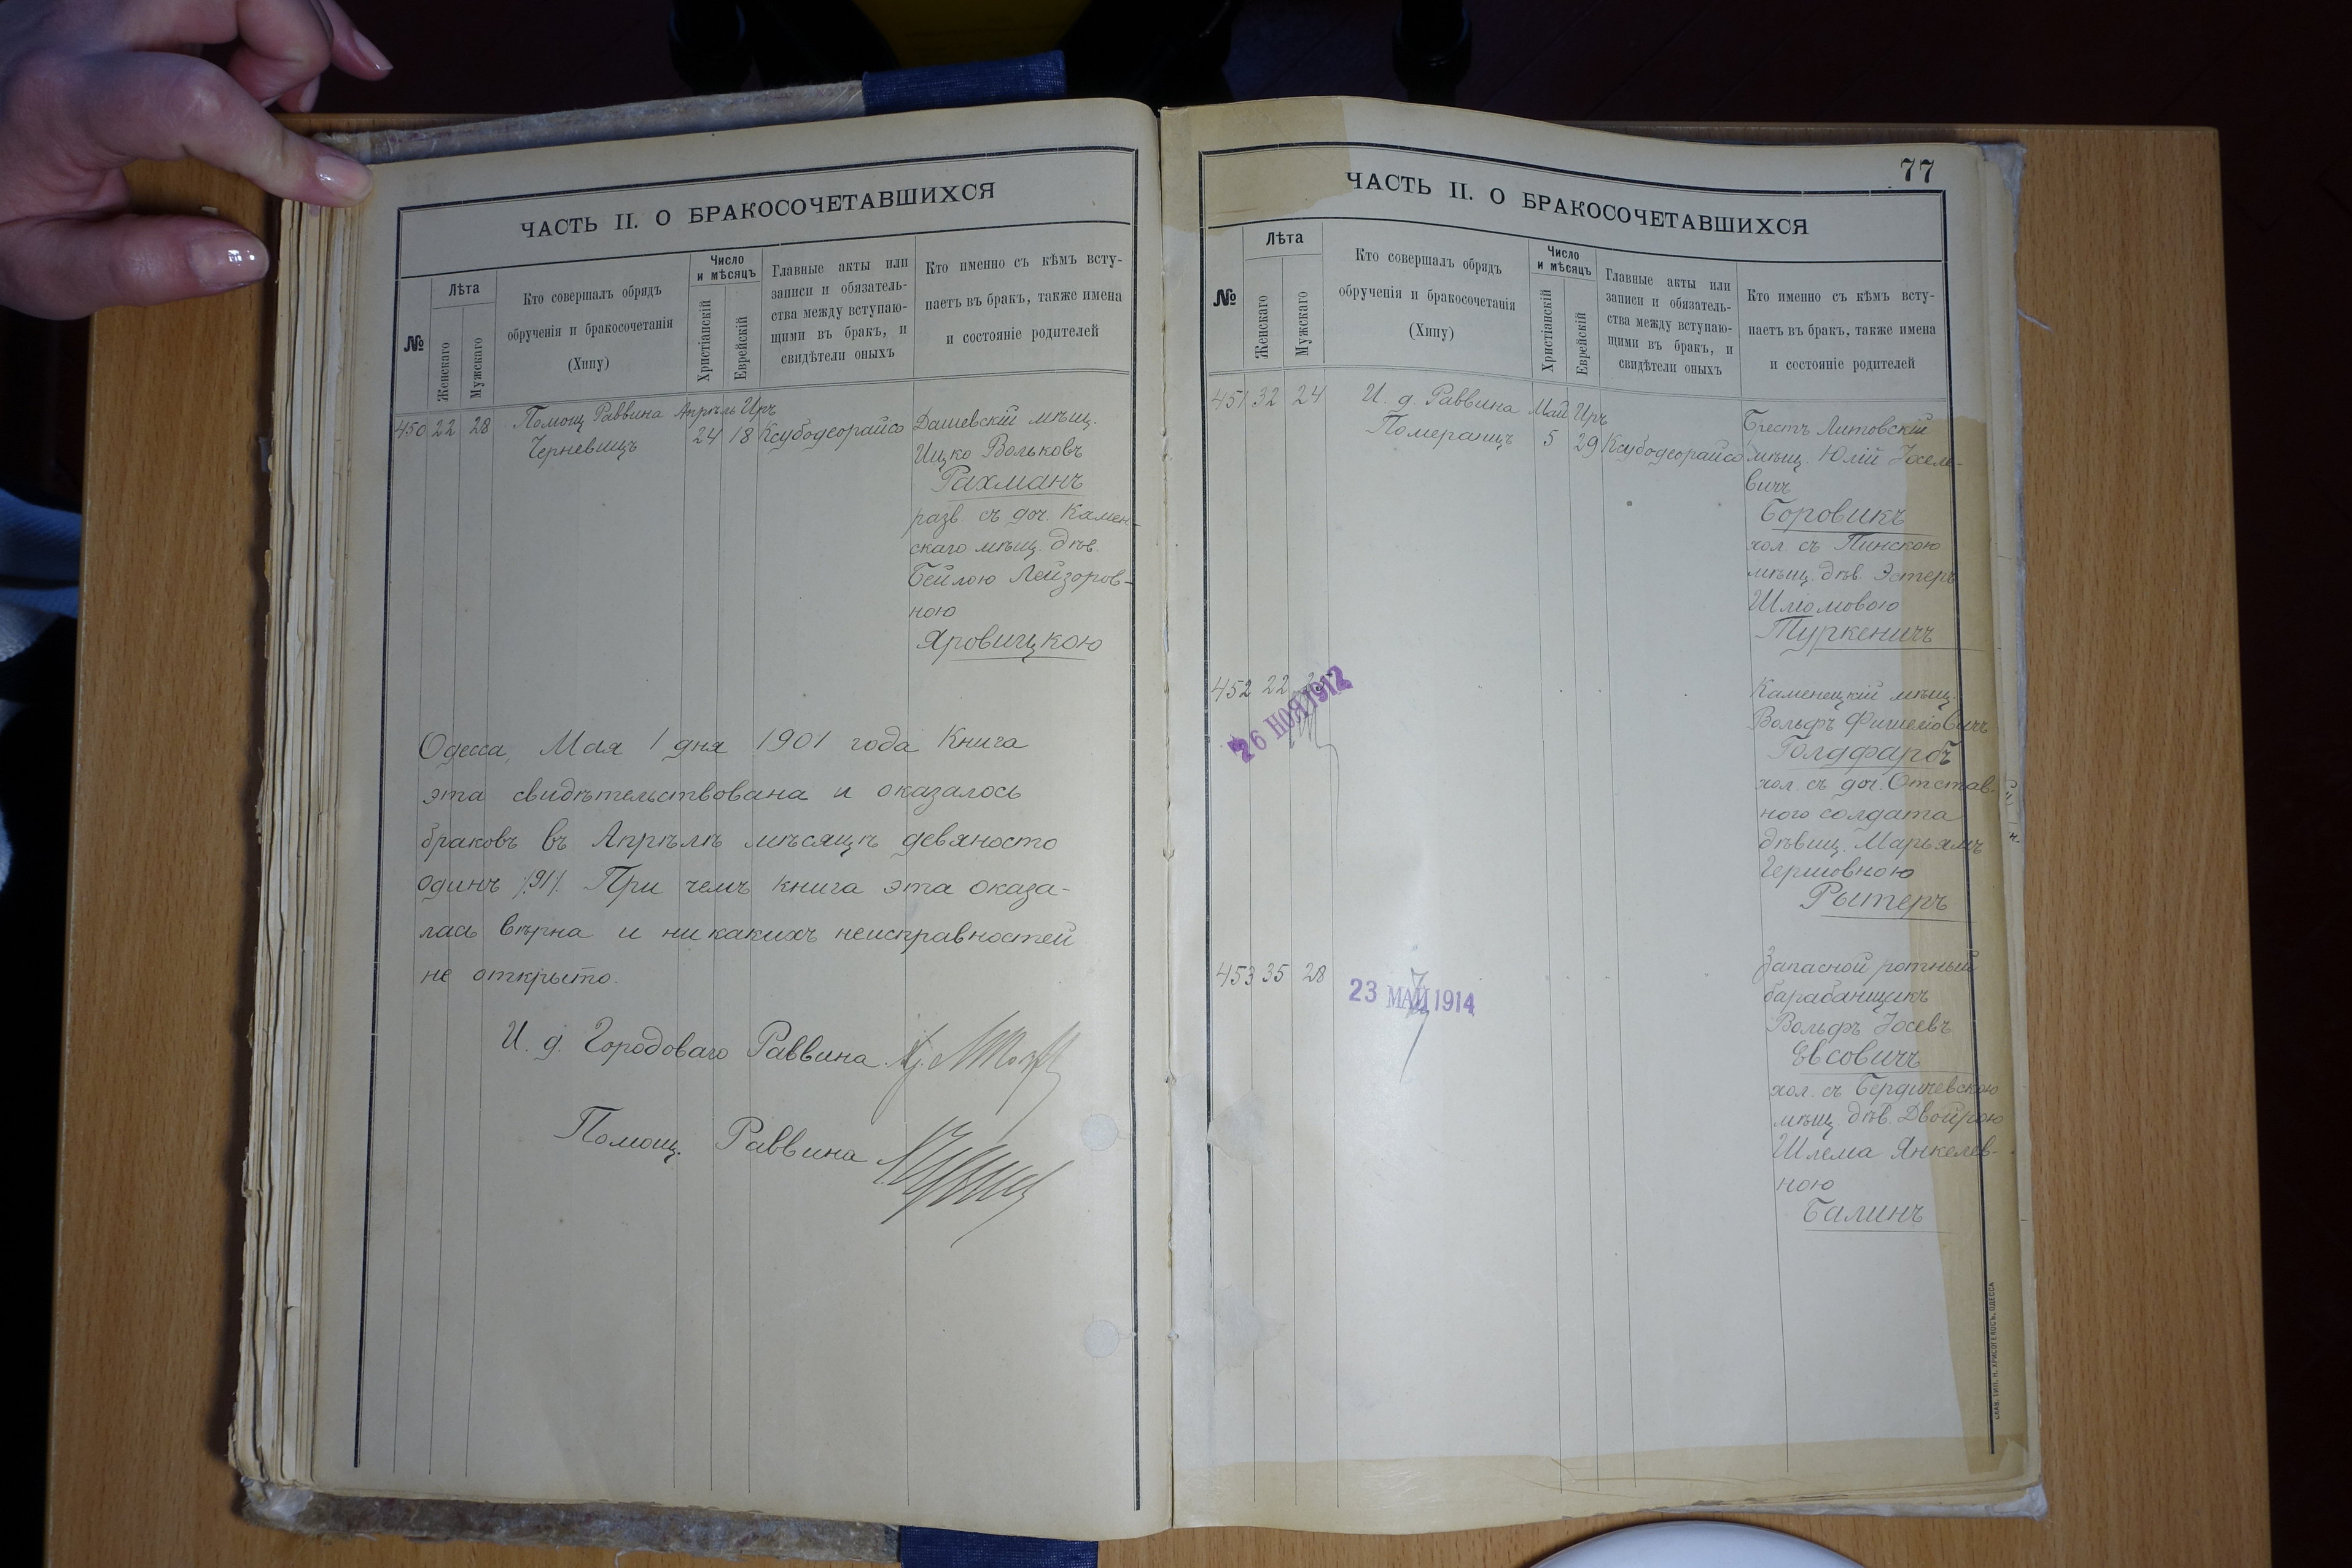 ЧАСТЬ II. О БРАКОСОЧЕТАВШИХСЯ
№
Лѣта
Женскаго
Мужскаго
Кто совершалъ обрядъ
обрученія и бракосочетанія
(Хипу)
Число
и мѣсяцъ
Христіанскій
Еврейскій
Главные акты или
записи и обязатель-
ства между вступаю-
щими въ бракъ, и
свидѣтели оныхъ
Кто именно съ кѣмъ всту-
паетъ въ бракъ, также имена
и состояніе родителей
450 22 28 Помощ Раввина Апрѣль Иръ
Черневицъ 24 18 Ксубодеорайсо
Дашевскій мѣщ.
Ицко Вольковъ
Рахманъ
разв. съ доч. Камен-
скаго мѣщ. дѣв.
Бейлою Лейзоров-
ною
Яровицкою
Одесса, Мая 1 дня 1901 года Книга
эта свидѣтельствована и оказалось
браковъ въ Апрѣлѣ мѣсяцѣ девяносто
одинъ /91/. При чемъ книга эта оказа-
лась вѣрна и никакихъ неисправностей
не открыто.
И. д. Городоваго Раввина
Помощ. Раввина
77
ЧАСТЬ II. О БРАКОСОЧЕТАВШИХСЯ
№
Лѣта
Женскаго
Мужскаго
Кто совершалъ обрядъ
обрученія и бракосочетанія
(Хипу)
Число
и мѣсяцъ
Христіанскій
Еврейскій
Главные акты или
записи и обязатель-
ства между вступаю-
щими въ бракъ, и
свидѣтели оныхъ
Кто именно съ кѣмъ всту-
паетъ въ бракъ, также имена
и состояніе родителей
451 32 24 И. д. Раввина Май Иръ
Померанцъ 5 29 Ксубодеорайсо
Брестъ Литовскій
мѣщ. Юлій Іосele-
вичъ
Боровикъ
хол. съ Пинскою
мѣщ. дѣв. Эстеръ
Шліомовою
Туркеничъ
452 22
26 НОЯ 1912
Каменецкій мѣщ.
Вольфъ Фишеліовичъ
Голдфарбъ
хол. съ доч. Отстав.
ного солдата
дѣвиц. Марьямъ
Гершовною
Рытеръ
453 35 28
23 МАЙ 1914
Запасной ротный
барабанщикъ
Вольфъ Іосевъ
Евсовичъ
хол. съ Бердичевскою
мѣщ. дѣв. Двойрою
Шлема Янкелев-
ною
Балинъ
СЛАВ. ТИП. Н. ХРИСОГЕЛОСЪ, ОДЕССА